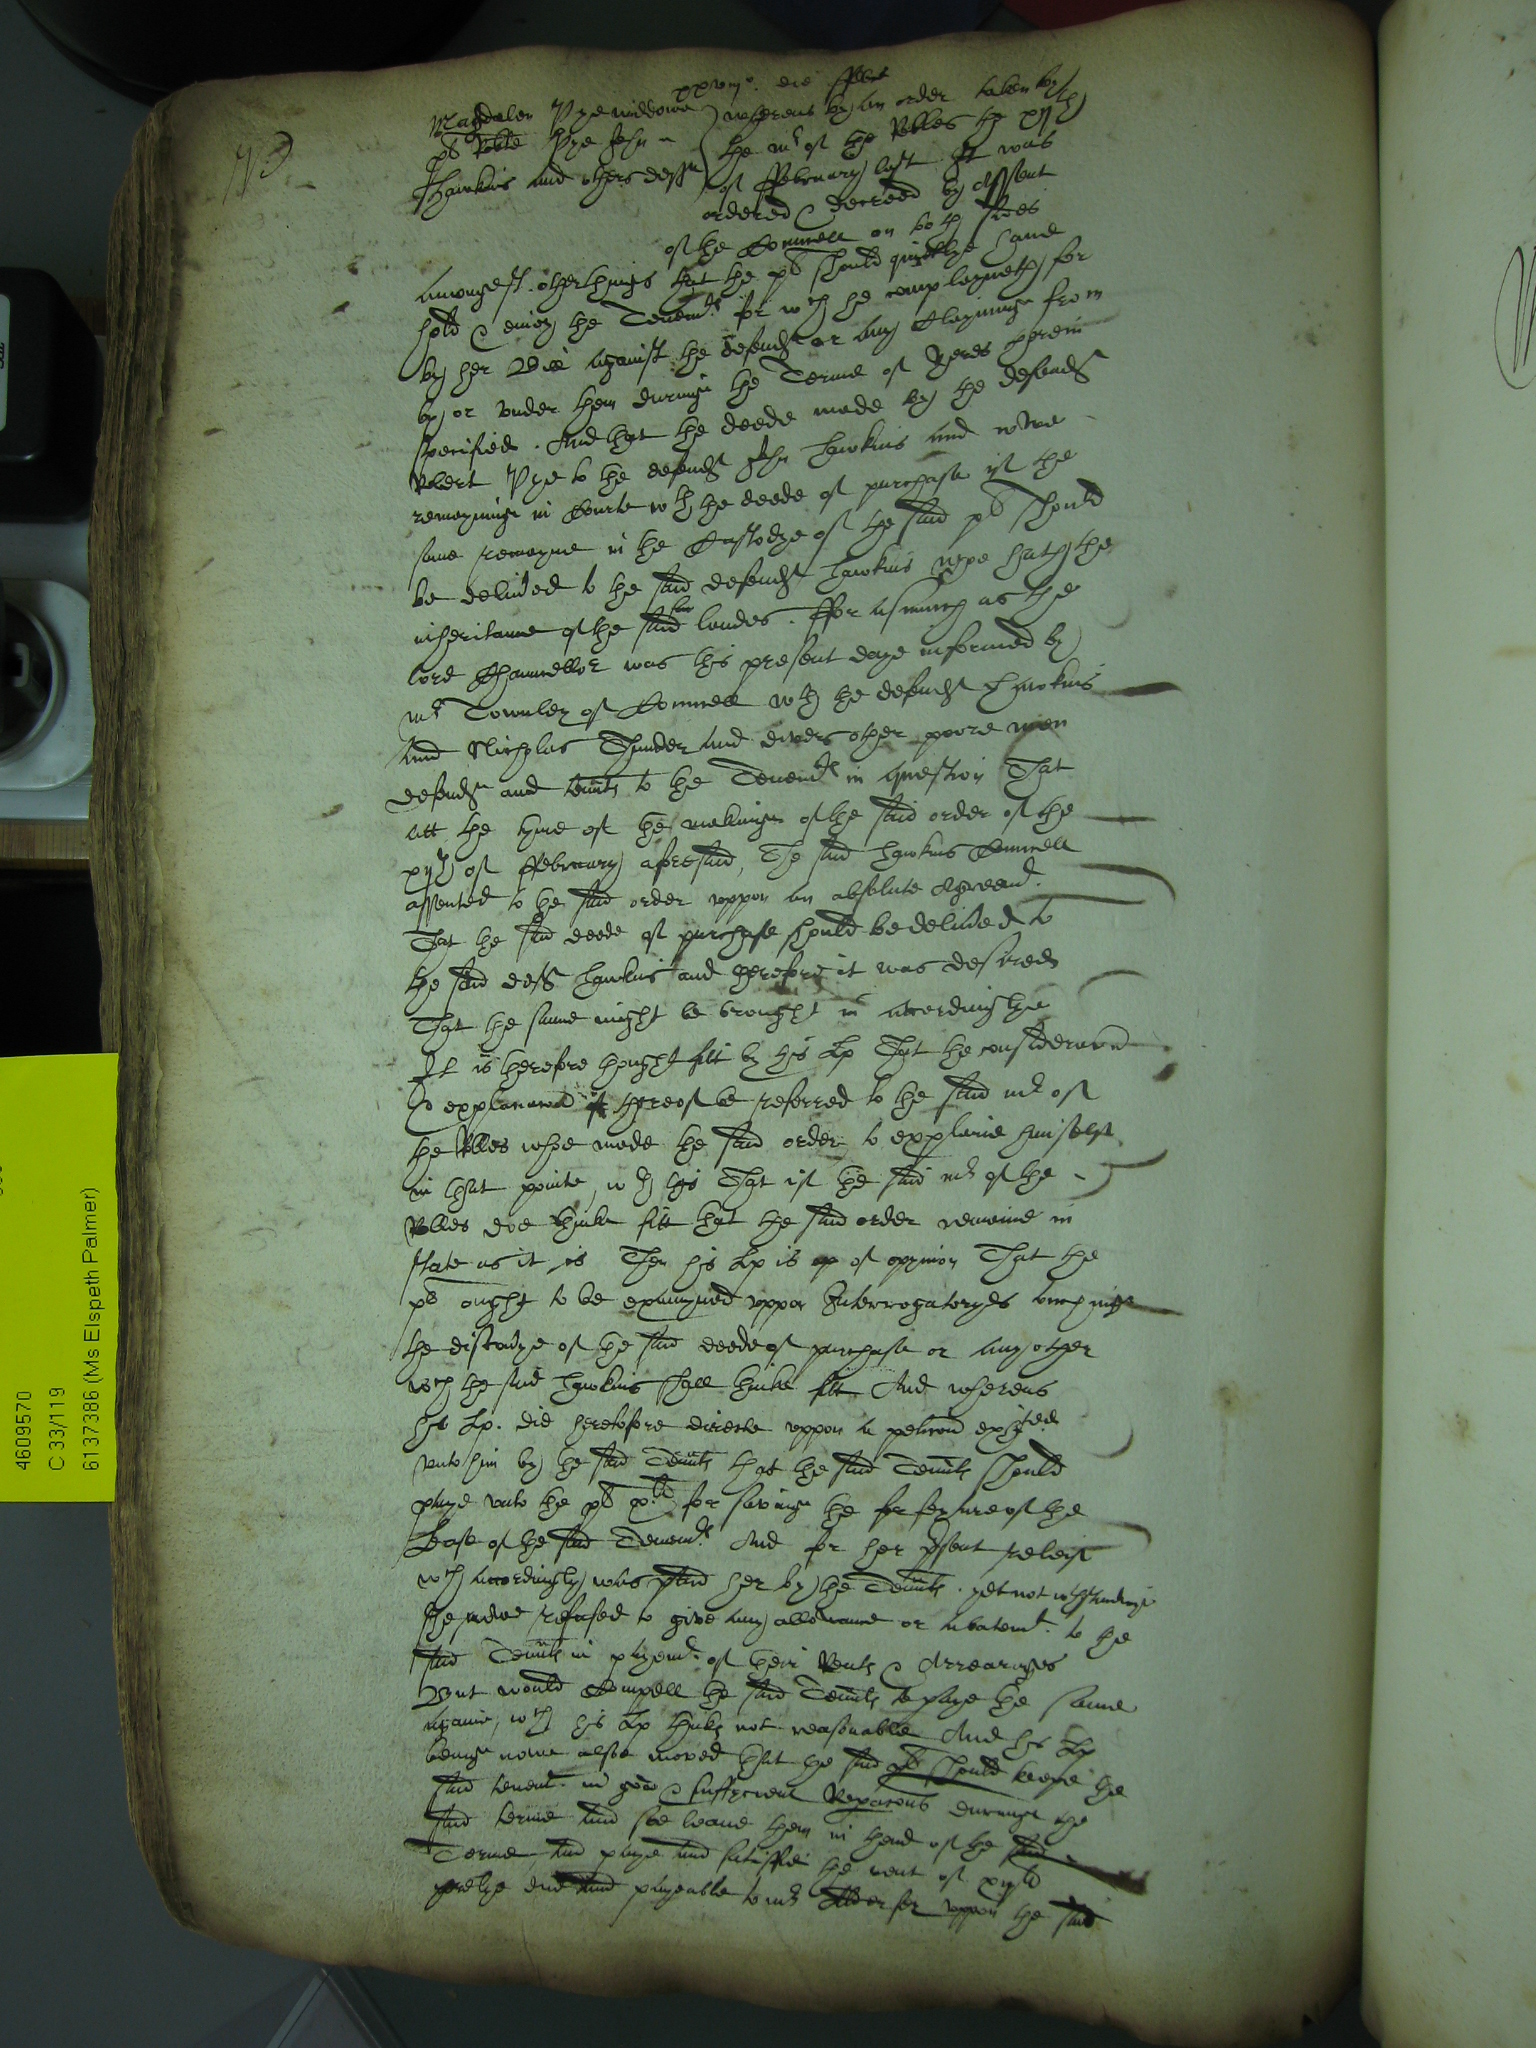 xxviijo die Febr
Magdalen Pye widdowe
plt Robte Pye John
Hawkins and others defts
Whereas by an order taken by
the mr of the Rolles the xijth
of ffebruary last It was
ordered & decreed by assent
of the Counsell on both sides
Amongest other things that the plt should quietlye have
hold & enioy the Tenemts for wch she complayneth for
by her Bill against the defendts or any clayminge from
by or under them during the Terme of yeres therein
specified. And that the deede made by the defendt
Robert Pye to the defendt John Hawkins and nowe
remayninge in Courte wth the deede of purchase if the
same remayne in the Custodye of the said plt should
be delivred to the said defendt Hawkins whoe hath the
inheritance of the said landes. fforasmuch as the
lord Chauncellor was this present daye informed by
mr Townley of Councell wth the defendt Hawkins
and Nicholas Thunder and divers other poore men
defendts and tennts to the Tenemts in question That
att the tyme of the makinge of the said order of the
xijth of ffebruary aforesaid, The said Hawkins Councell
assented to the said order uppon an absolute Agreemt.
That the said deede of purchase should be delivred to
the said deft Hawkins and therefore it was desired
That the same might be brought in accordinglye
It is therefore thought fitt by his Lp That the consideracon
& explanacon thereof be referred to the said mr of
the Rolles whoe made the said order to explaine himself
in that pointe, wth this That if the said mr of the
Rolles doe thinke fitt that the said order remaine in
state as it is Then his Lp is of opynion That the
plt ought to be examyned uppon Interrogatoryes touchinge
the custodye of the said deede of purchase or any other
wch the said Hawkins shall thinke fitt And whereas
his Lp. did heretofore directe uppon a peticon exhited
unto him by the said Tennts that the said Tennts should
paye unto the plt xli for savinge the forfeyture of the
Lease of the said Tenemts And for her psent releif
wch accordingly was paid her by the Tennts. yet notwthstandinge
she nowe refused to give any allowance or abatemt. to the
said Tennts in paymt. of their Rents & Arrearages
But would Compell the said Tennts to paye the same
againe, wch his Lp thinks not reasonable And his Lp
beinge nowe alsoe moved That the said plt should keepe the
said tenemt. in good & sufficient Reparacons during the
said terme And soe leave them in thend of the said
Terme, And paye and satisfie the rent of
yerelye due and payeable to mr uppon the said
4609570
C 33/119
6137386 (Ms Elspeth Palmer)